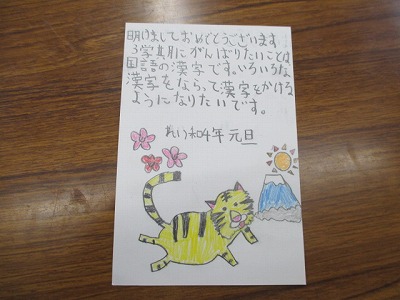 明けましておめでとうございます
3学期にがんばりたいことは
国語の漢字です。いろいろな
漢字をならって漢字をかける
ようになりたいです。
れい和4年 元旦